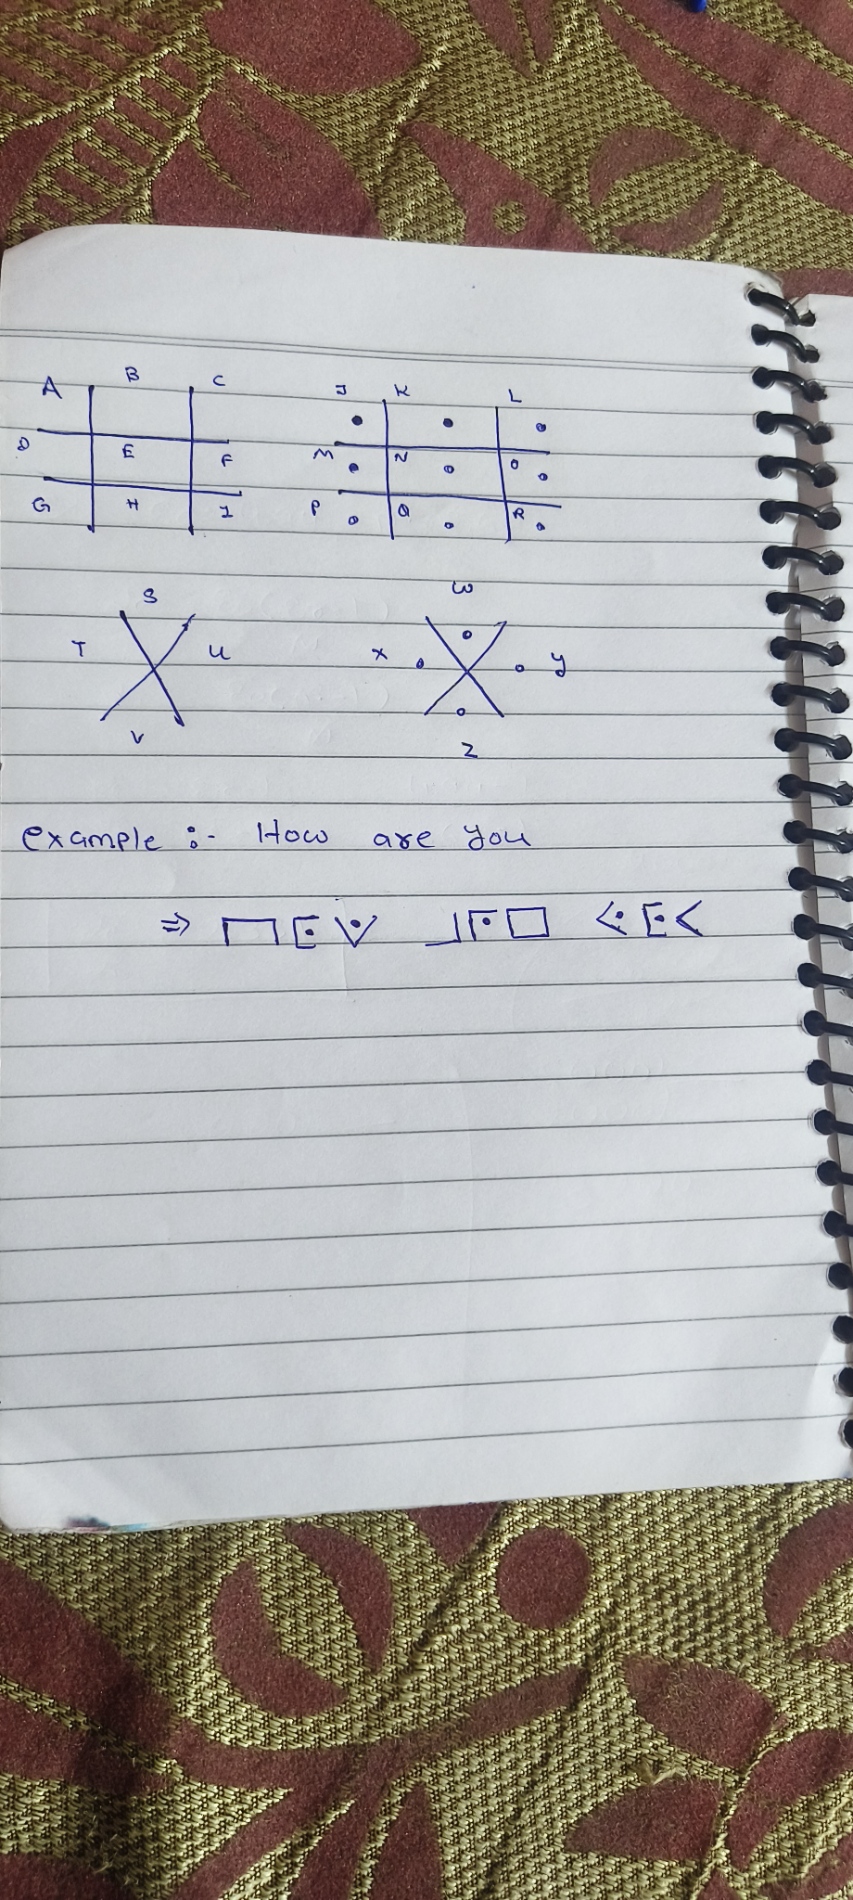 A B C
D E F
G H I
J K L
M N O
P Q R
S
T U
V
W
X Y
Z
example :- How are you
⇒